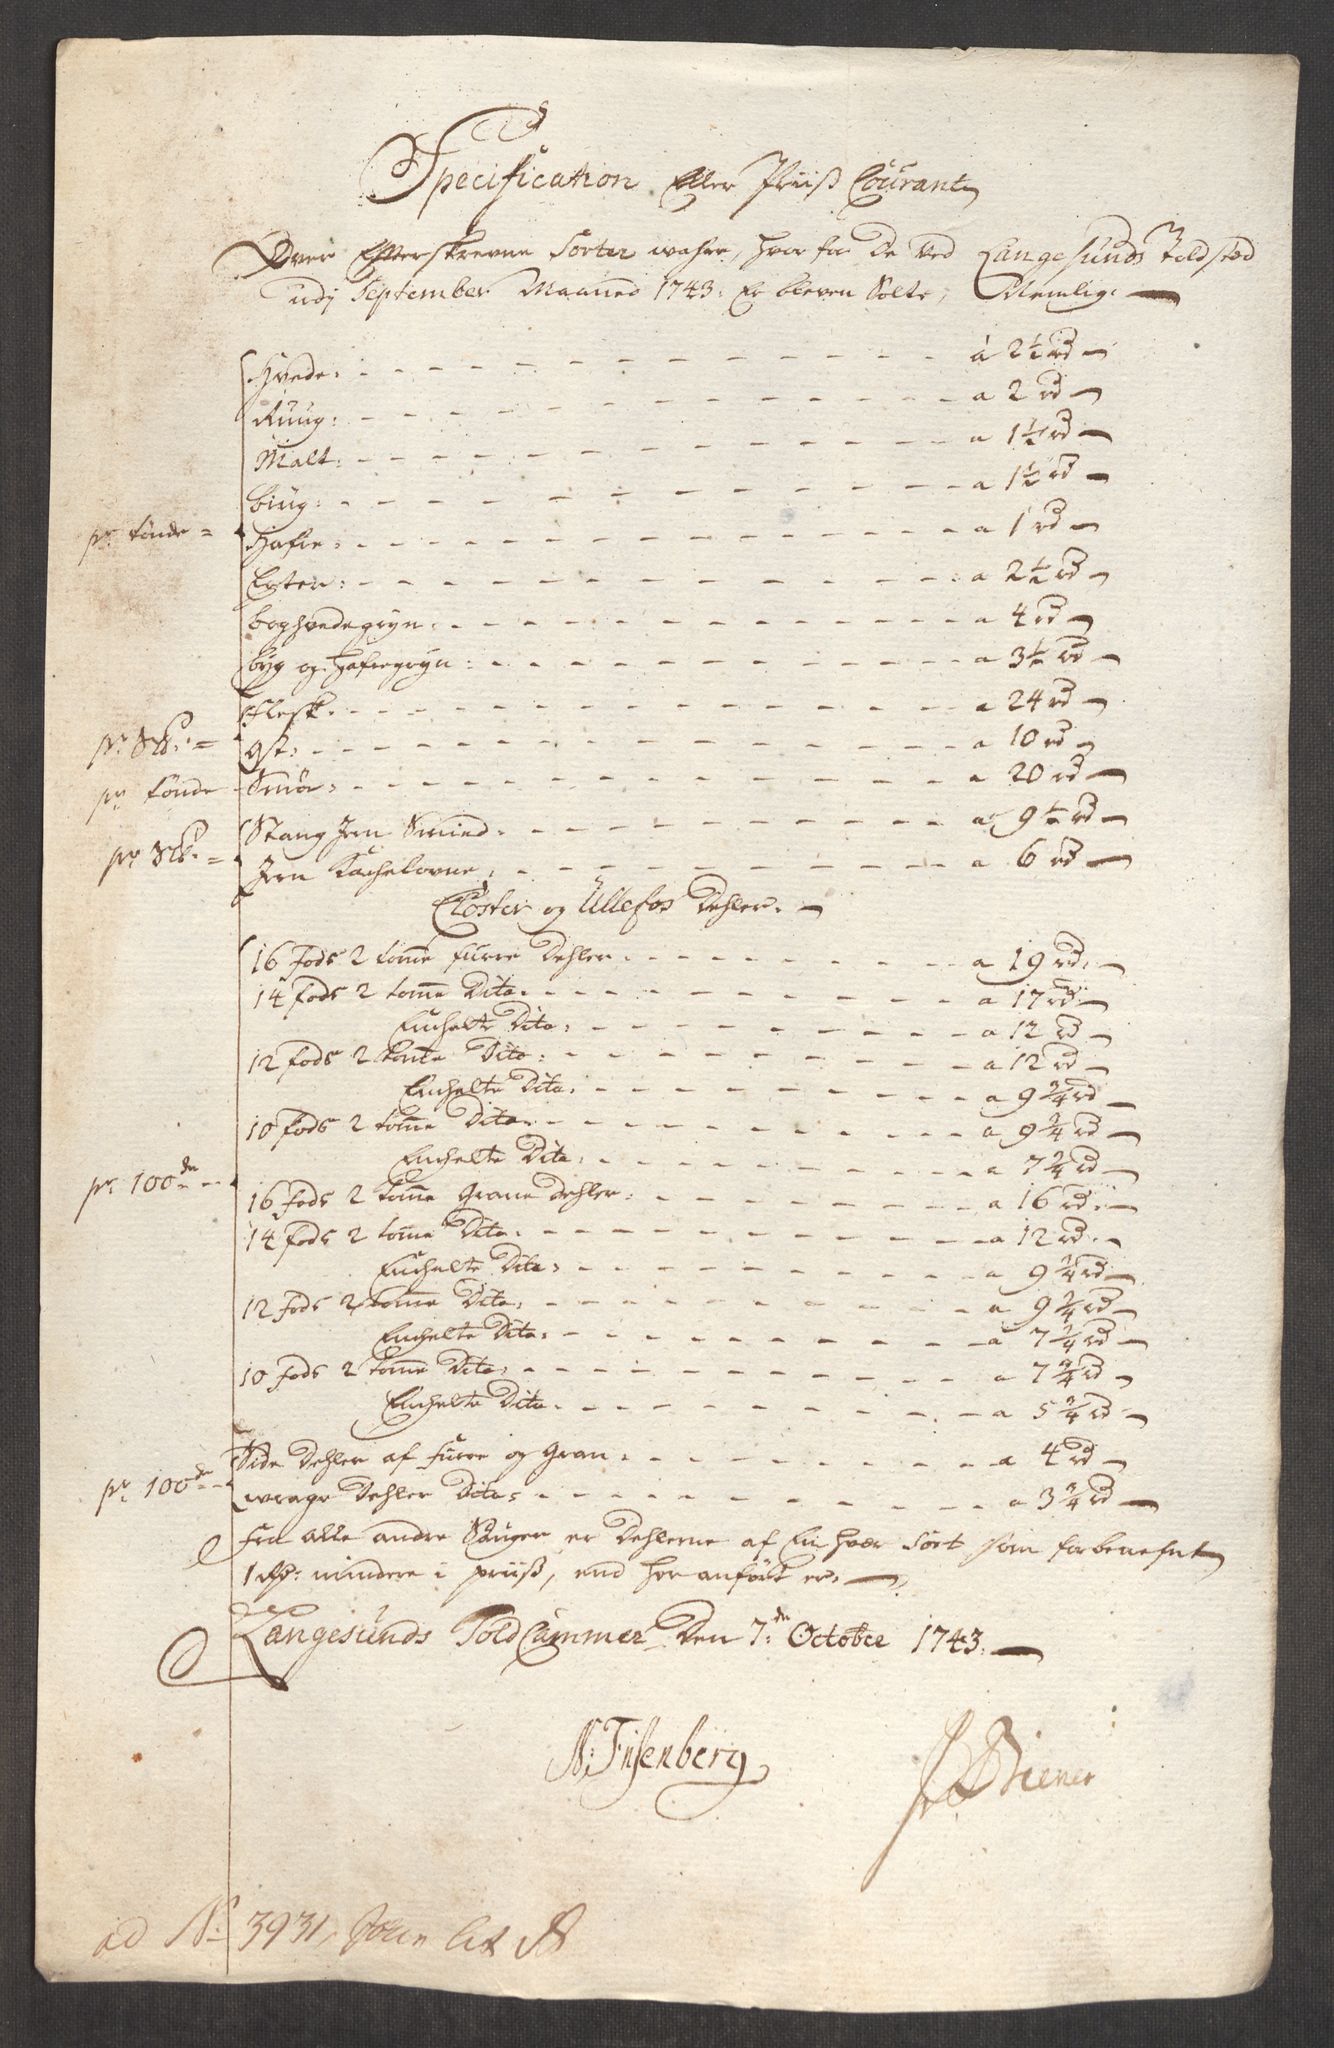 Specification Eller Priiß Courant
Over Efterskrevne Sorter wahre, hvor for De ved Langesunds Toldsted
udj September Maaned 1743: Er bleven Solte, Nemlig:
Hvede: a 2½ rd
Ruug: a 2 rd
Malt: a 1½ rd
biug: a 1½ rd
pr tønde = Hafre: a 1 rd
Erter: a 2½ rd
boghvedegryn: a 4 rd
byg og Hafregryn: a 3½ rd
Flesk: a 24 rd
pr S℔: = Ost: a 10 rd
pr tønde Smör: a 20 rd
Stang Jern Smied: a 9½ rd
pr S℔: = Jern Kachelovne: a 6 rd
Closter og Ullefos Dehler:
16 Fods 2 tomme furre Dehler: a 19 rd:
14 fods 2 tomme Dito: a 17 rd:
Enchelte Dito: a 12 rd
12 fods 2 tomme Dito: a 12 rd
Enchelte Dito: a 9¾ rd
10 fods 2 tomme Dito: a 9¾ rd
Enchelte Dito: a 7¾ rd
pr 100de
16 Fods 2 tomme Grane Dehler: a 16 rd:
14 fods 2 tomme Dito: a 12 rd:
Enchelte Dito: a 9¾ rd
12 Fods 2 tomme Dito: a 9¾ rd
Enchelte Dito: a 7¾ rd
10 Fods 2 tomme Dito: a 7¾ rd
Enchelte Dito: a 5¾ rd
Side Dehler af Furre og Gran: a 4 rd
pr 100de wrage Dehler Dito: a 3¾ rd
Fra alle andre Sauger er Dehlerne af En hver Sort som forbenefnt
1 Rd: mindere i priiß, end her anført er:
Langesunds Told Cammer Den 7de October 1743.
N: Fiisenberg
Wiener
ad No 3931, Joun Lit A